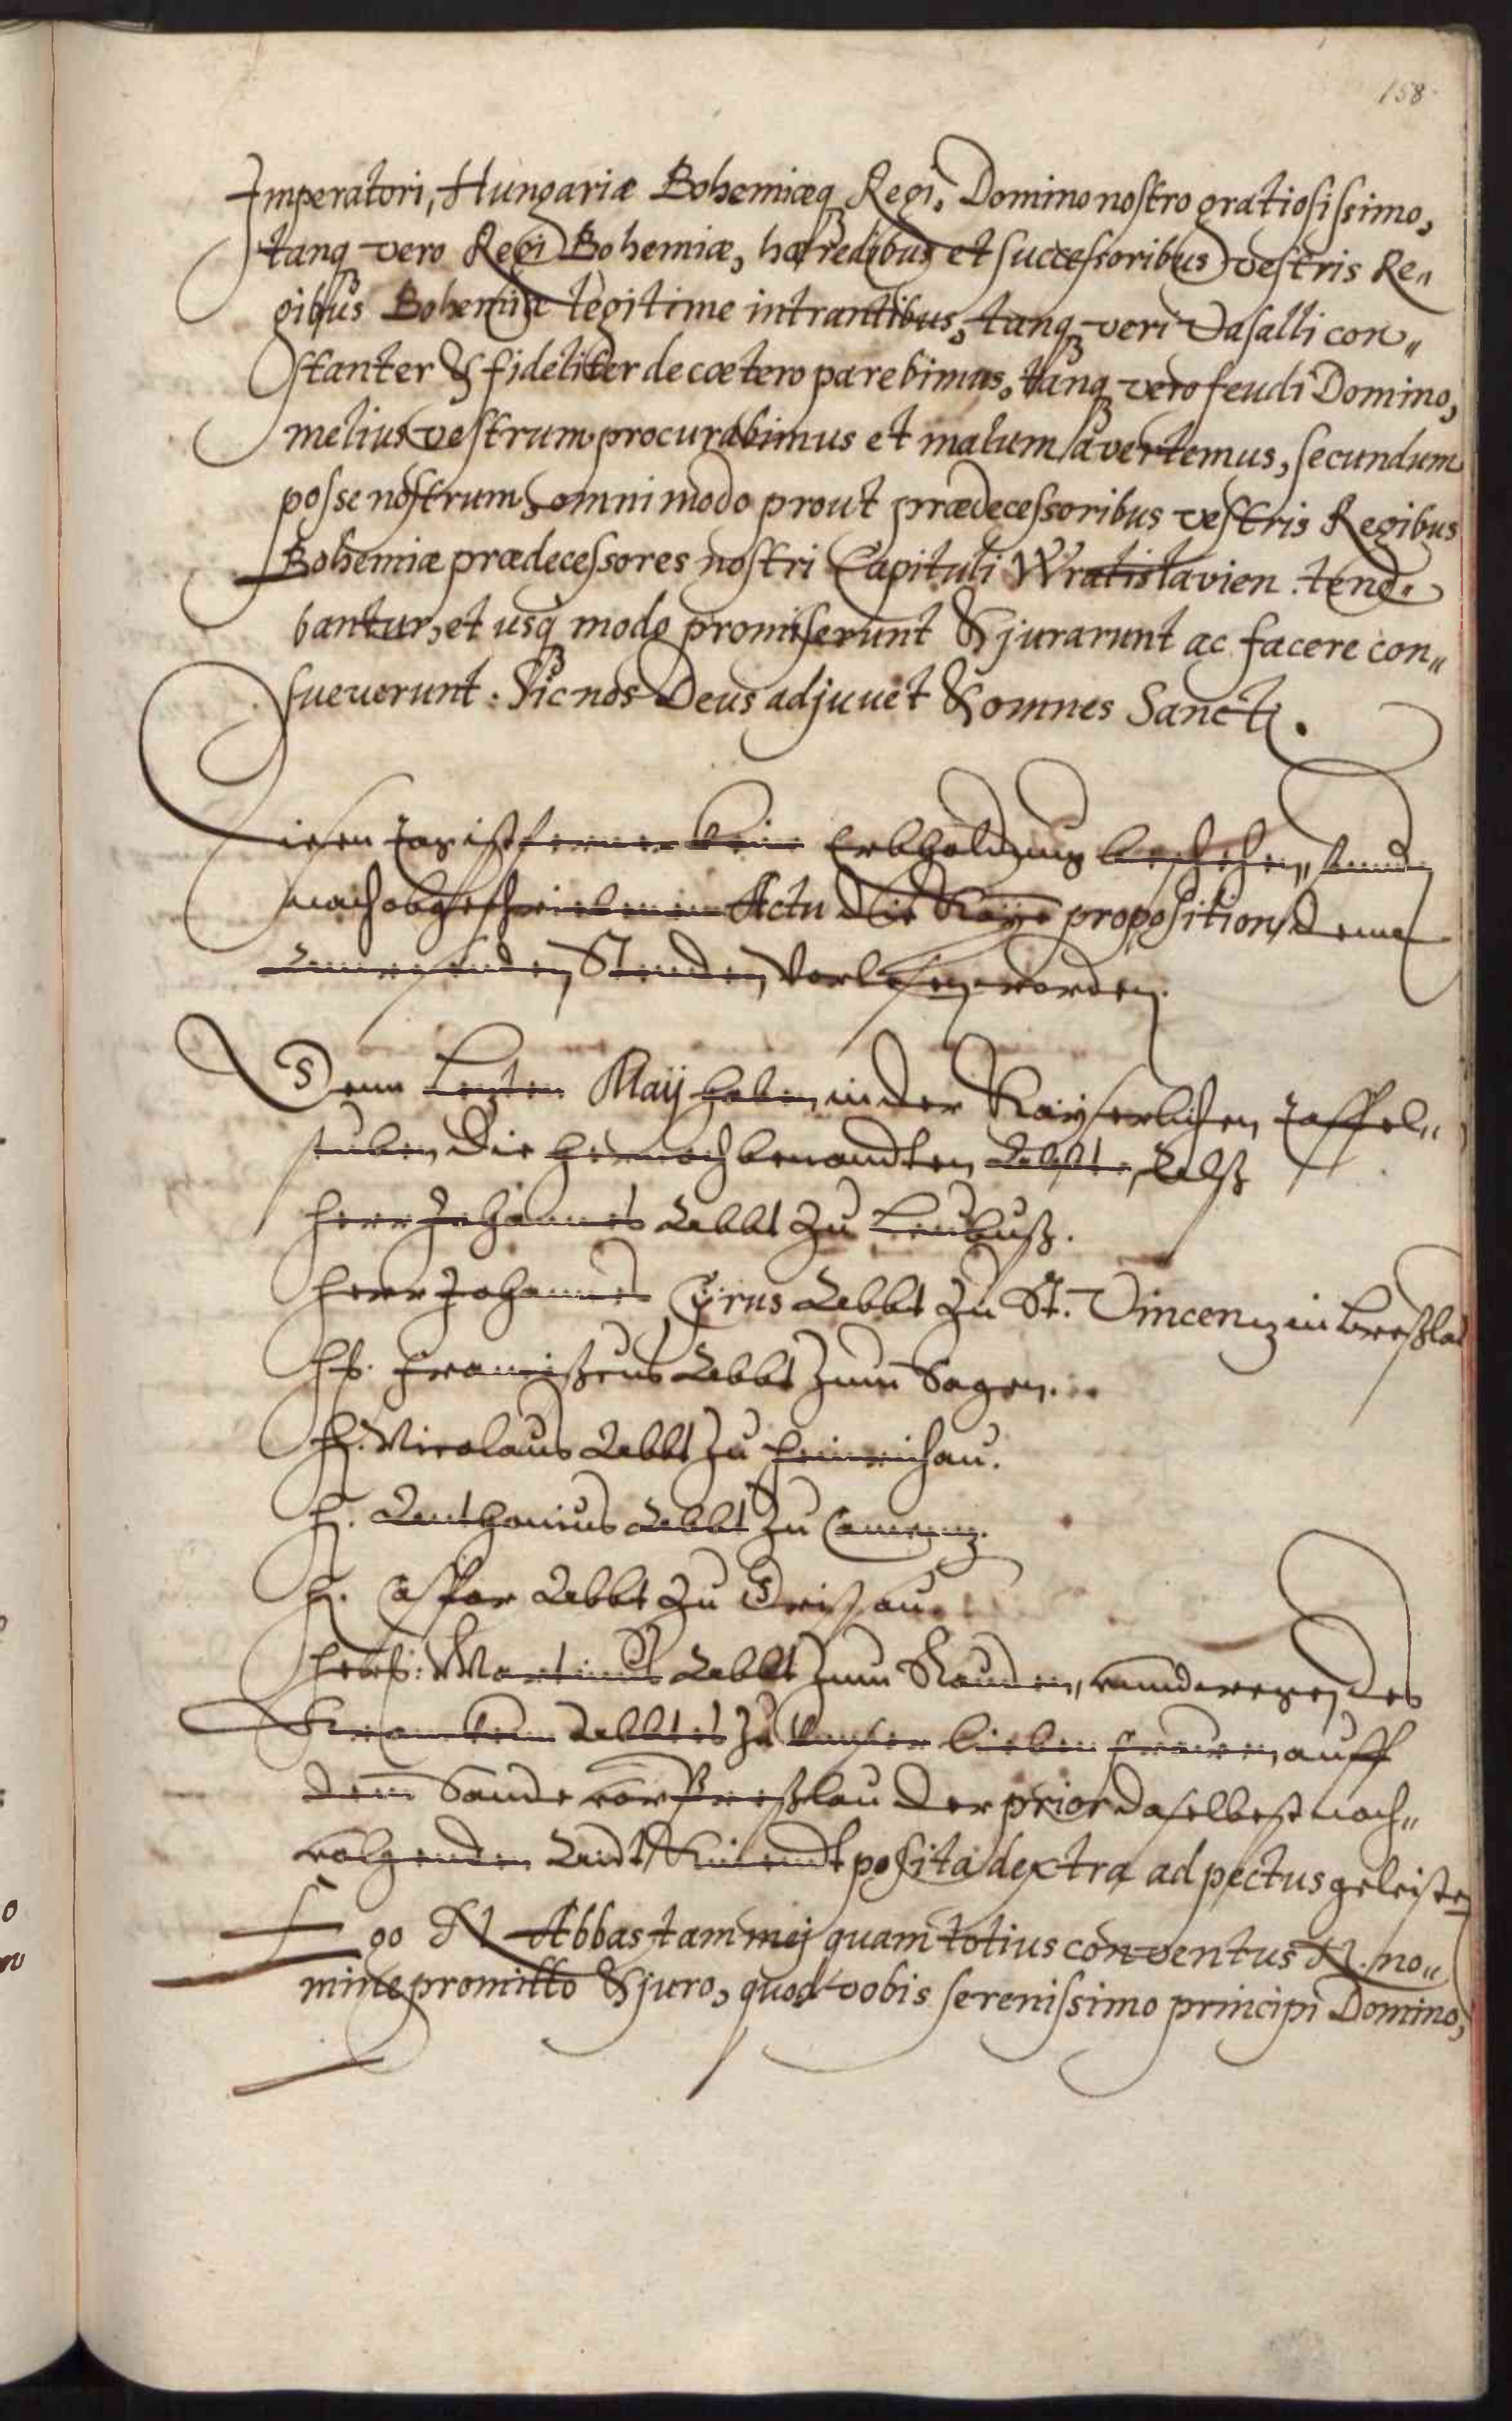 158
Imperatori, Hungariæ Bohemiæq Regi, Domino nostro gratiosissimo,
tanq vero Regi Bohemiæ, hæredibus et successoribus vestris Re„
gibus Bohemiæ legitime intrantibus, tanq veri Vasalli con„
stanter & fideliter de cætero parebimus, tanq vero feudi Domino,
melius vestrum procurabimus et malum avertemus, secundum
posse nostrum, omnimodo prout prædecessoribus vestris Regibus
Bohemiæ prædecessores nostri Capituli Wratislavien. tene„
bantur, et usq modo promiserunt & jurarunt ac facere con„
sueverunt: Sic nos Deus adjuvet & omnes Sancti.
Diesen Tag ist ferner keine Erbholdung beschehen, sondern
nach obgeschriebenem Actu die Kaye proposition denen
anwesenden Stenden vorlesen worden.
Denn Lezten Maij haben in der Kayserlichen Taffel„
stuben die hernach benandten Aebbte, Alß
Herr Johannes Aebbt zu Leubuß.
Herr Johannes Cyrus Aebbt zu St. Vincenz in Breßlau
Hr. Franciscus Aebbt zum Sagen.
H. Nicolaus Aebbt zu Heinrichau.
H. Anthonius Aebbt zu Camenz.
H. Caspar Aebbt zu Grissau.
Herr: Martinus Aebbt zum Rauden, unnd wegen des
Krancken Aebbtes zu Unser lieben Frauen, auff
dem Sande vor Breßlau der prior daselbest nach„
volgenden Aidt posita dextra ad pectus geleistet
Ego N Abbas tam mej quam totius conventus N. no„
mine promitto & juro, quod vobis serenissimo principi Domino,